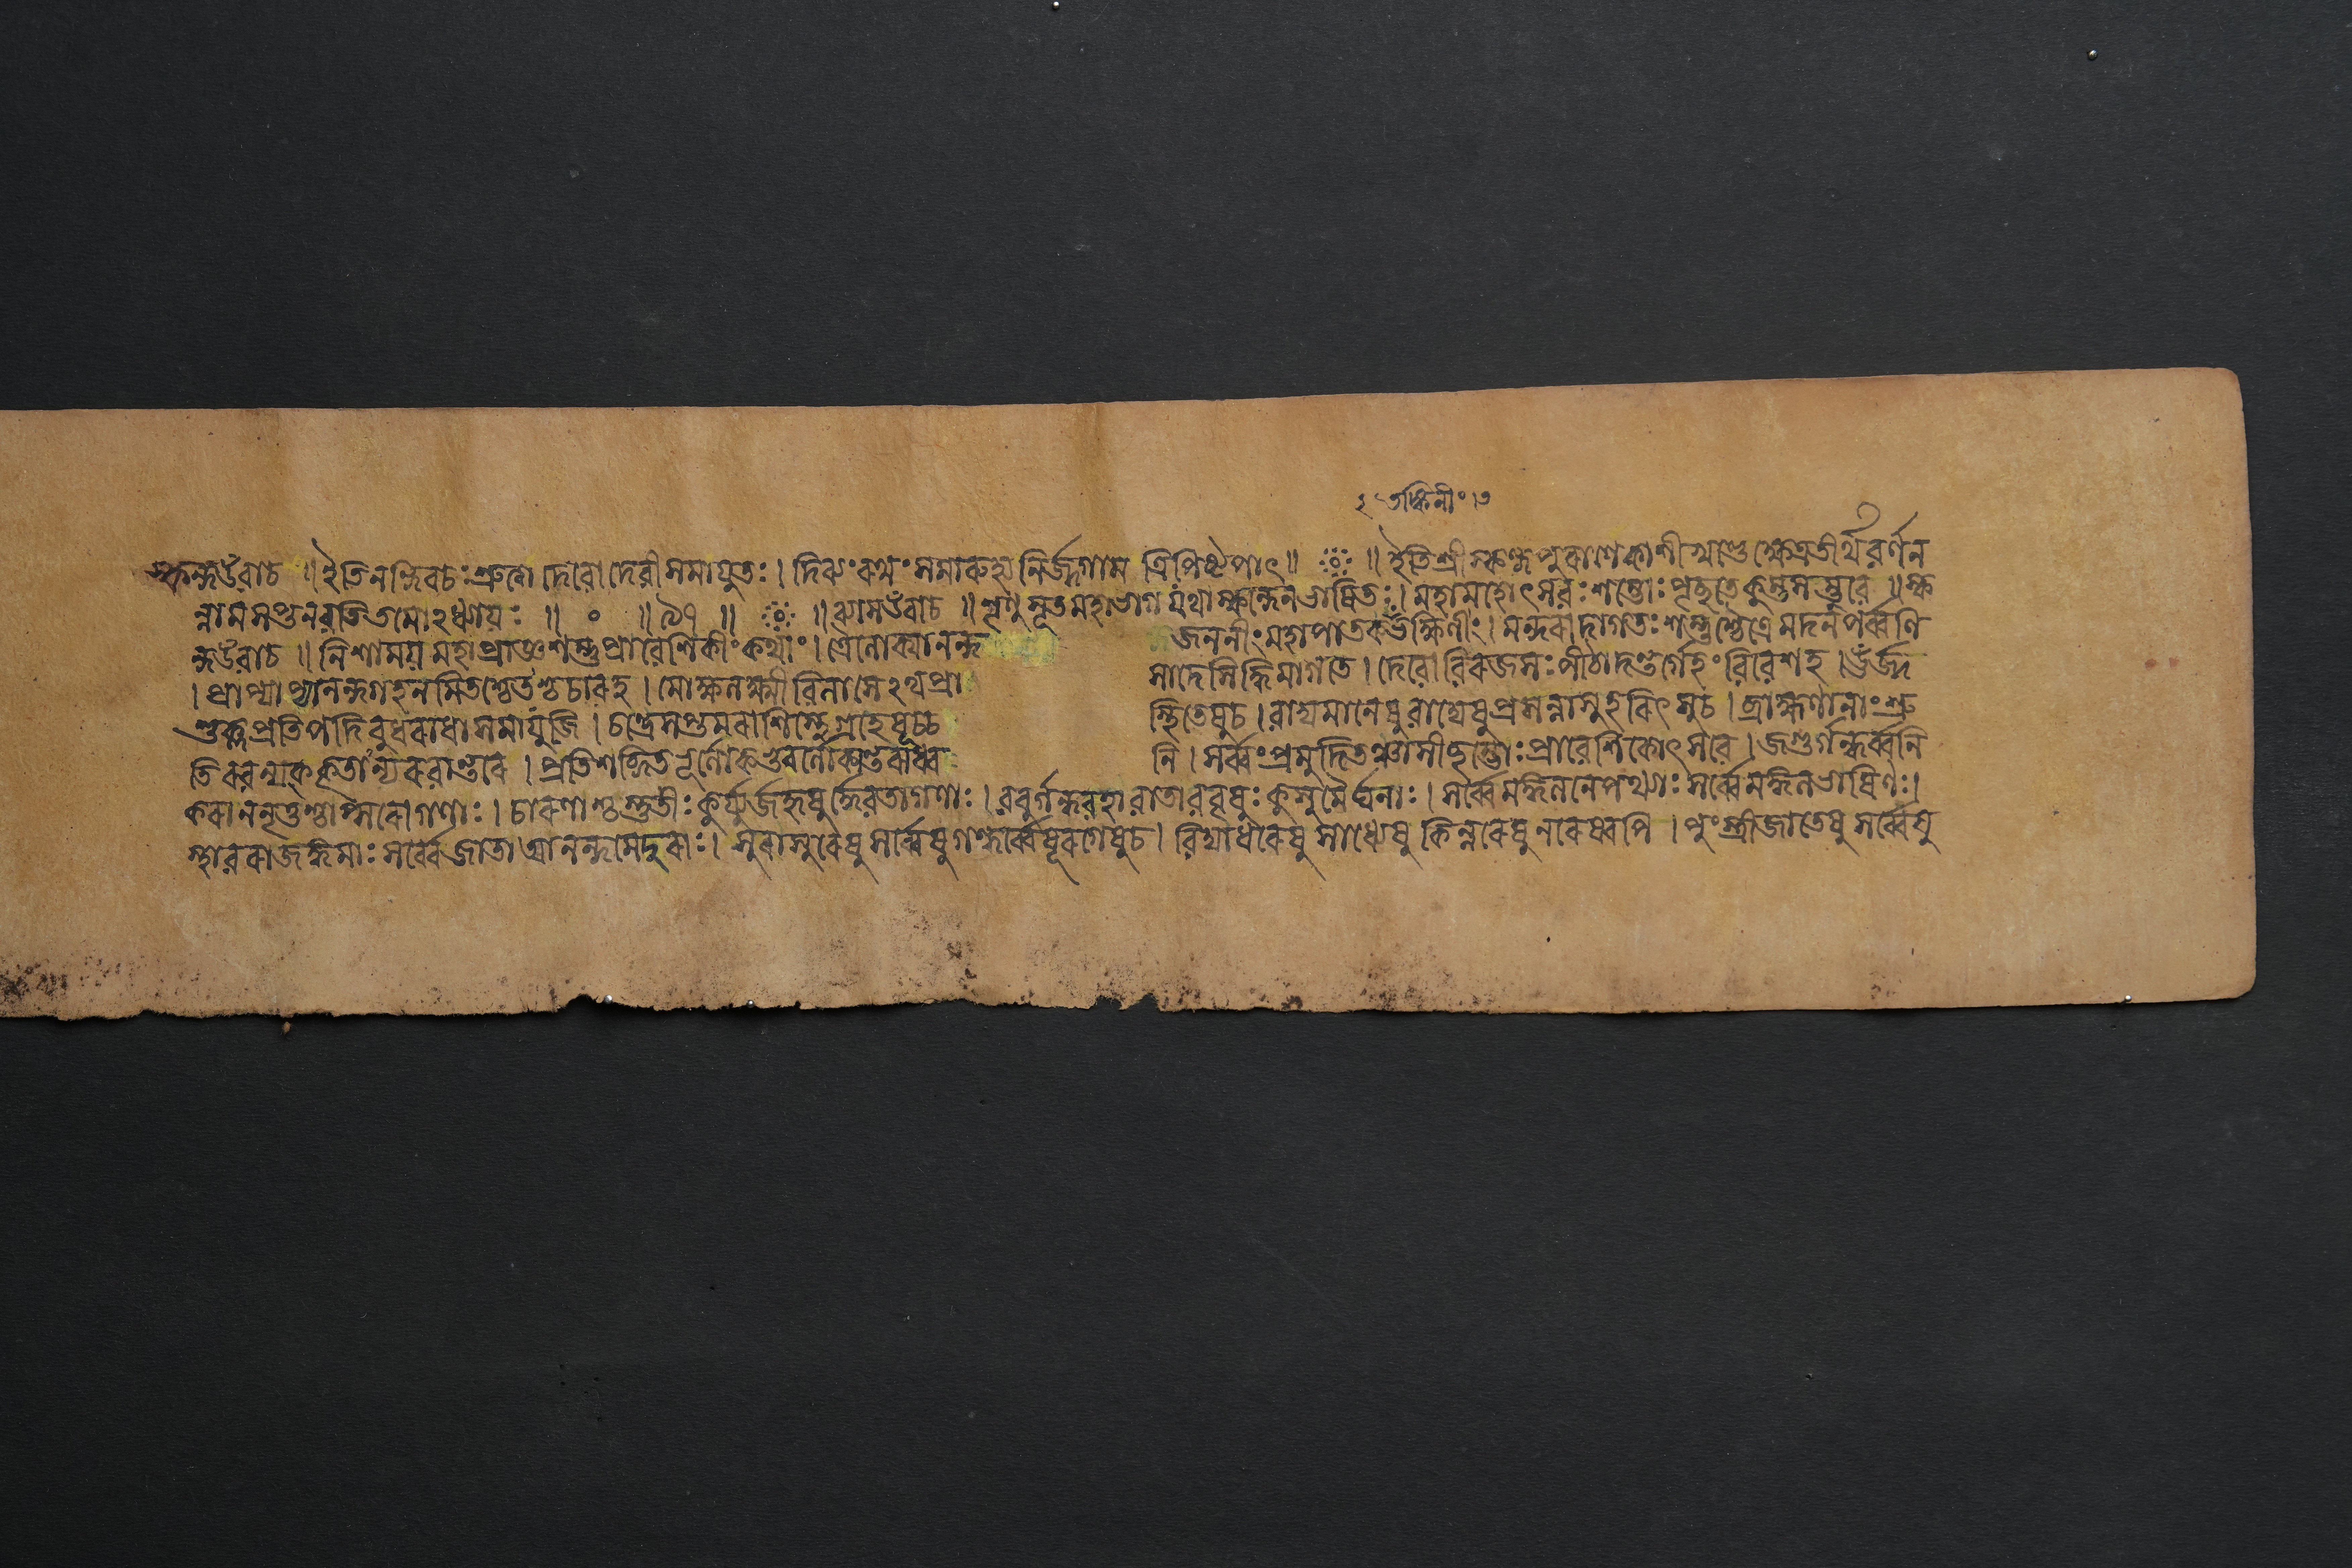 ২ তক্ষিনীং ৩
স্কন্দউবাচ ॥ ইতিনন্দিবচঃশ্রুত্বা দেবো দেবীসমাযুতঃ । দিব্যংরথংসমারুহ্য নির্জ্জগাম ত্রিপিষ্টপাৎ ॥ ॥ ইতিশ্রীস্কন্দপুরাণেকাশীখণ্ডেক্ষেত্রতীর্থবর্ণন
ন্নামসপ্তনবতিতমোঽধ্যায়ঃ ॥ ০ ॥ ৯৭ ॥ ॥ ব্যাসউবাচ ॥ শৃণুসূতমহাভাগ যথাস্কন্দেনভাষিতঃ । মহামহোৎসবঃশম্ভোঃপৃচ্ছতেকুম্ভসম্ভবে ॥ স্ক
ন্দউবাচ ॥ নিশাময়মহাপ্রাজ্ঞশম্ভুপ্রাবেশিকীংকথাং । ত্রৈলোক্যানন্দ জননীংমহাপাতকভক্ষিণীং । মন্দরাদাগতঃশম্ভুশ্চৈত্রেমদনপর্ব্বণি
। প্রাপ্যাপ্যানন্দগহনমিতশ্চেতশ্চচারহ । মোক্ষলক্ষ্মীবিলাসেঽথপ্রা সাদেসিদ্ধিমাগতে । দেবোবিরজসঃপীঠাদন্তর্গেহংবিবেশহ । ঊর্জ্জ
শুক্লপ্রতিপদিবুধরাধাসমাযুজি । চন্দ্রেসপ্তমরাশিস্থেগ্রহেষূচ্চ স্থিতেষুচ । বাদ্যমানেষুবাদ্যেষুপ্রসন্নাসুহরিৎসুচ । ব্রাহ্মণানাংশ্রু
তিরবন্যক্কৃতান্যরবান্তরে । প্রতিশব্দিতভূর্লোকভুবর্লোকান্তরাধ্ব নি । সর্ব্বংপ্রমুদিতঞ্চাসীচ্ছম্ভোঃপ্রাবেশিকোৎসবে । জগুর্গন্ধর্ব্বনি
করাননৃতুশ্চাপ্সরোগণাঃ । চারণাশ্চস্তুতীঃকুর্য্যুর্জহৃষুর্দ্দেবতাগণাঃ । ববুর্গন্ধবহাবাতাববৃষুঃকুসুমৈর্ঘনাঃ । সর্ব্বেমঙ্গলনেপথ্যাঃসর্ব্বেমঙ্গলভাষিণঃ ।
স্থাবরাজঙ্গমাঃসর্ব্বেজাতাআনন্দমেদুরাঃ । সুরাসুরেষুসর্ব্বেষুগন্ধর্ব্বেষূরগেষুচ । বিদ্যাধরেষুসাধ্যেষুকিন্নরেষুনরেষ্বপি । পুংস্ত্রীজাতেষুসর্ব্বেষু